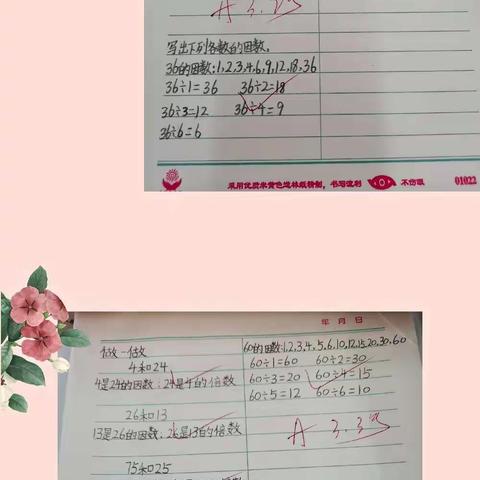 A 3.2
写出下列各数的因数。
36的因数:1,2,3,4,6,9,12,18,36
36÷1=36 36÷2=18
36÷3=12 36÷4=9
36÷6=6
采用优质米黄色道林纸精制,书写流利 不伤眼 01022
年 月 日
做一做
4和24
4是24的因数;24是4的倍数
26和13
13是26的因数;26是13的倍数
75和25
60的因数:1,2,3,4,5,6,10,12,15,20,30,60
60÷1=60 60÷2=30
60÷3=20 60÷4=15
60÷5=12 60÷6=10
A 3.3